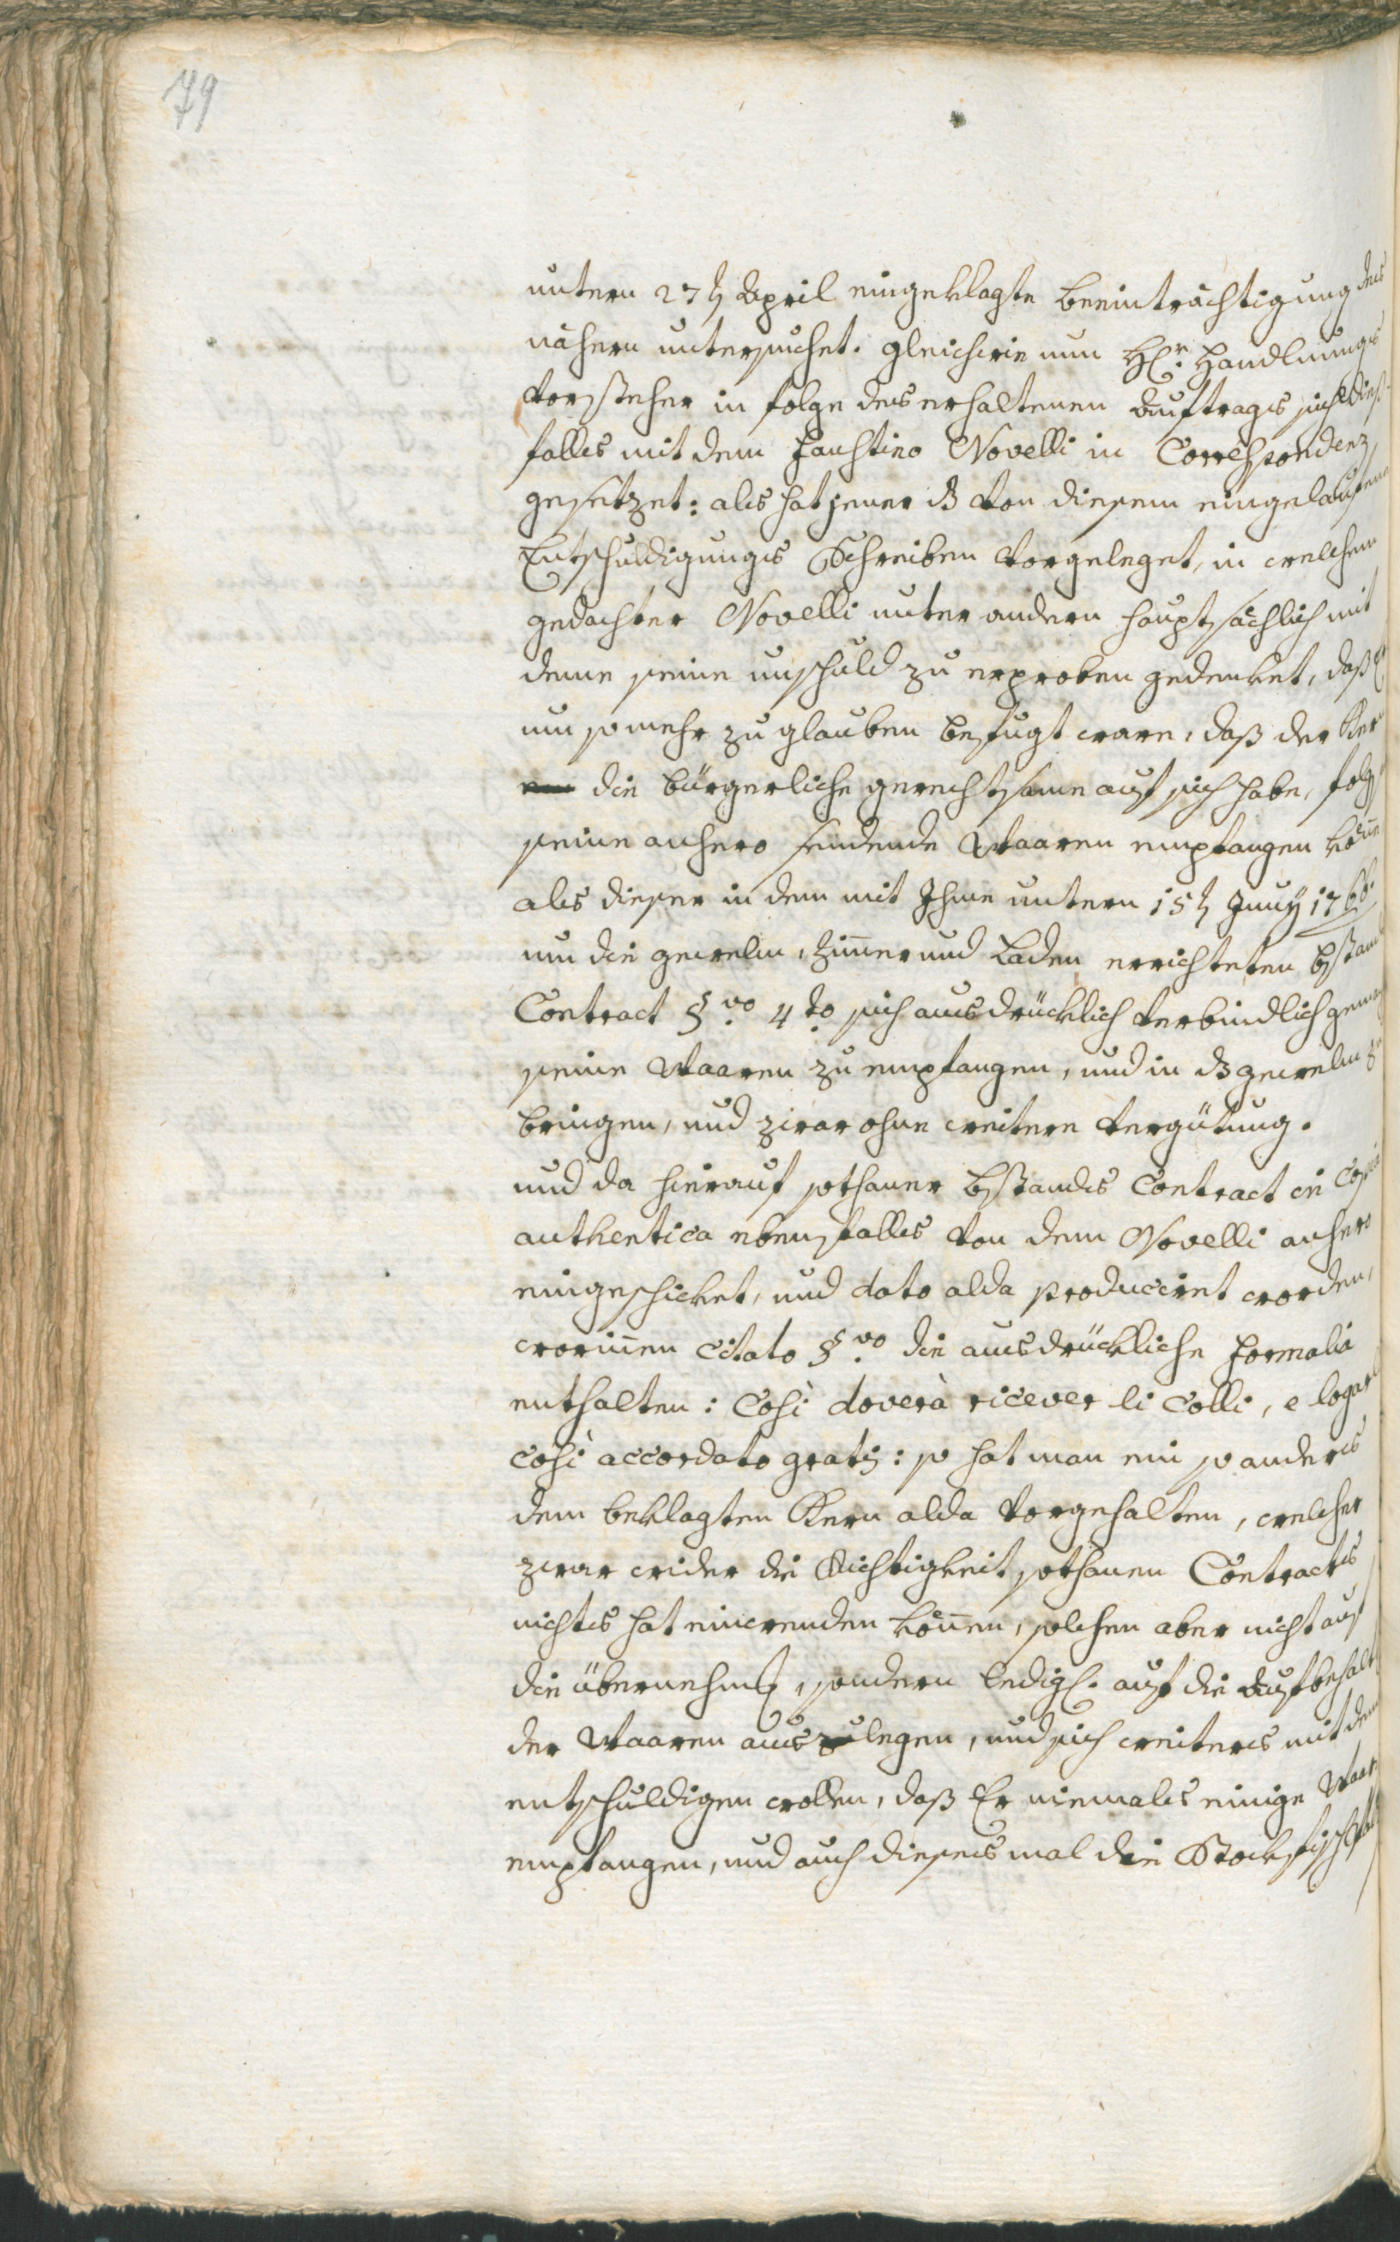 79
untern 27ten April eingeklagte beeinträchtigung des
nähern untersuchet. gleichwie nun Hr. Handlungs
Vorsteher in folge des erhaltenen Auftrags sich dies
falles mit dem Faustino Novelli in Correspondenz
gesetzet: als hat jener dz von diesem eingelaufene
Entschuldigungs Schreiben vorgeleget, in welchem
gedachter Novelli unter andern hauptsächlich mit
deme seine unschuld zu erproben gedenket, daß Er
um so mehr zu glauben befugt ware, daß der Ker
die bürgerliche gerechtsame auf sich habe, folg
seine anhero sendende Waaren empfangen könne
als dieser in dem mit Ihme untern 15ten Juny 1766.
um die gewelm, Zimmer und Laden errichteten bstand
Contract §vo 4to sich ausdrücklich verbindlich gema
seine Waaren zu empfangen, und in dz gewelm zu
bringen, und zwar ohne weitere vergütung.
und da hierauf sothaner bstands Contract in Copia
authentica ebenfalls von dem Novelli anhero
eingeschicket, und dato alda produciret worden,
worinnen citato §vo die ausdrückliche Formalia
enthalten: Cosi doverà ricever li Colli, e logar
cosi accordato gratis: so hat man ein so anders
dem beklagten Kern alda vorgehalten, welcher
zwar wider die Richtigkeit sothanen Contracts
nichts hat einwenden können, solchen aber nicht auf
die übernehmg, sondern ledigl. auf die Aufbehalt
der Waaren auszulegen, und sich weiters mit dem
entschuldigen wollen, daß Er niemals einige Waar
empfangen, und auch dieses mal die Stockfisch